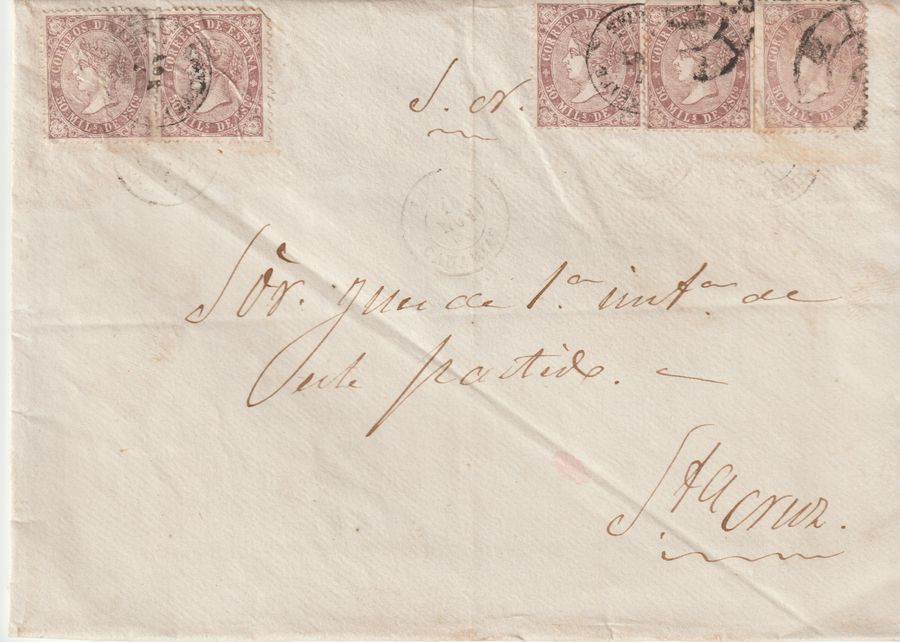 CORREOS DE ESPAÑA
50 MIL.S DE ESCO
CORREOS DE ESPAÑA
50 MIL.S DE ESCO
CORREOS DE ESPAÑA
50 MIL.S DE ESCO
CORREOS DE ESPAÑA
50 MIL.S DE ESCO
CORREOS DE ESPAÑA
50 MIL.S DE ESCO
S. N.
CANARIAS
Sōr. Juez de 1.ª inst.ª de
este partido. —
Sta Cruz.